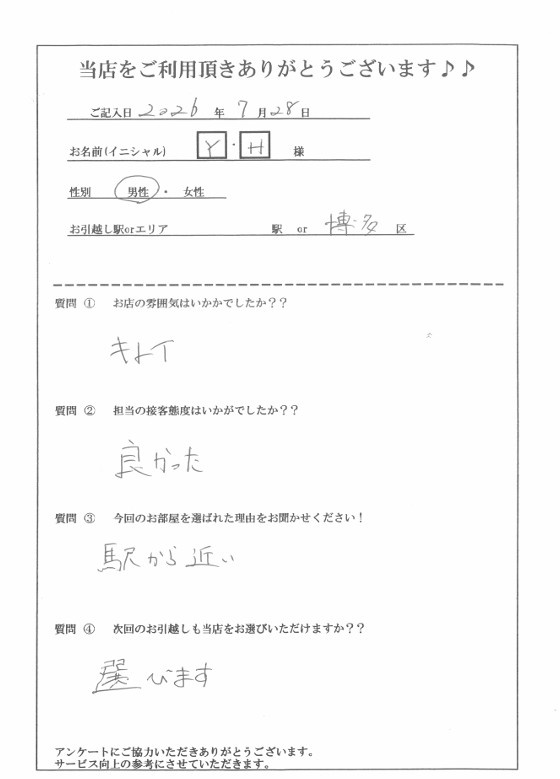 当店をご利用頂きありがとうございます♪♪
ご記入日 2026 年 7 月 28 日
お名前(イニシャル) Y ・ H 様
性別 男性 ・ 女性
お引越し駅orエリア 駅 or 博多 区
質問 ① お店の雰囲気はいかかでしたか??
キレイ
質問 ② 担当の接客態度はいかがでしたか??
良かった
質問 ③ 今回のお部屋を選ばれた理由をお聞かせください!
駅から近い
質問 ④ 次回のお引越しも当店をお選びいただけますか??
選びます
アンケートにご協力いただきありがとうございます。
サービス向上の参考にさせていただきます。